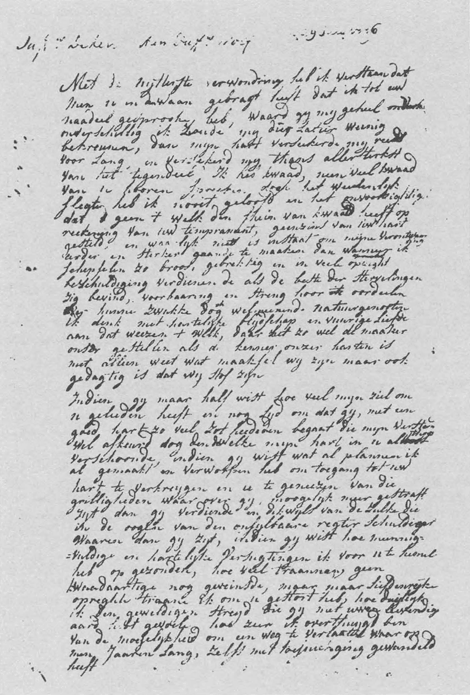 Juf. Deken Aan Juf.
Met de uijtterste verwondring heb ik verstaan dat
Men u in waan gebragt heeft dat ik tot uw
nadeel gesprooken heb, waard gy my geheel
onverschillig ik zoude my dier Laster weinig
bekreunen, dan mijn hart verzekerde my reeds
voor Lang en verzekerd my thans aller sterkst
van het tegendeel. Ik heb kwaad, neen veel kwaad
van u hooren spreeken. dogh het weezenlijk
slegte heb ik nooit geloofd en het onvoorsigtige
dat geen t welk den schein van kwaad heeft op
reekening van uw temprament, geenzins van uw hart
gesteld en waarlijk niets is instaat om mijne
eerder en sterker gaande te maken dan wanneer ik
schepselen zo broos, gebrekkig en in veel opzigt
beschuldiging verdienende als de beste der stervelingen
zig bevind, voorbaarig en streng hoor oordeelen
over hunne zwakke dog welmeenende natuurgenooten
ik denk met hartelijke blydschap en vuurige liefde
aan dat weezen t welk, daar het zo wel de maker
onzer gestellen als de kenner onzer harten is
niet alleen weet wat maaksel wij zijn maar ook
gedagtig is dat wij stof zijn
Indien gy maar half wist hoe veel mijn ziel om
u geleden heeft en nog lijd om dat gy, met een
goed hart zo veel zotheden begaat die mijn verstand
wel afkeurd dog dewelke mijn hart in u altoos
verschoonde, indien gy wist wat al plannen ik
al gemaakt en verworpen heb om toegang tot uw
hart te verkrygen en u te geneezen van die
grilligheden waar over gy, moogelijk meer gestraft
zijt dan gy verdiend en dikwijls van de zulke die
in de oogen van den onfylbaare regter schuldiger
Waaren dan gy zijt, indien gy wist hoe mennig-
vuldige en hartelijke verzugtingen ik voor u ten hemel
heb op gezonden, hoe veel traanen, geen
kwaadaartige nog geveinsde, maar
opregte traanen ik om u gestort heb, hoe
ik den geweldigen streid die gy met uwen levendigen
aard hebt gevoeld hoe zeer ik overtuigd ben
van de moeijelijkheid om een weg te verlaaten waar op
men Jaaren Lang, zelfs met toejuiching gewandeld
heeft